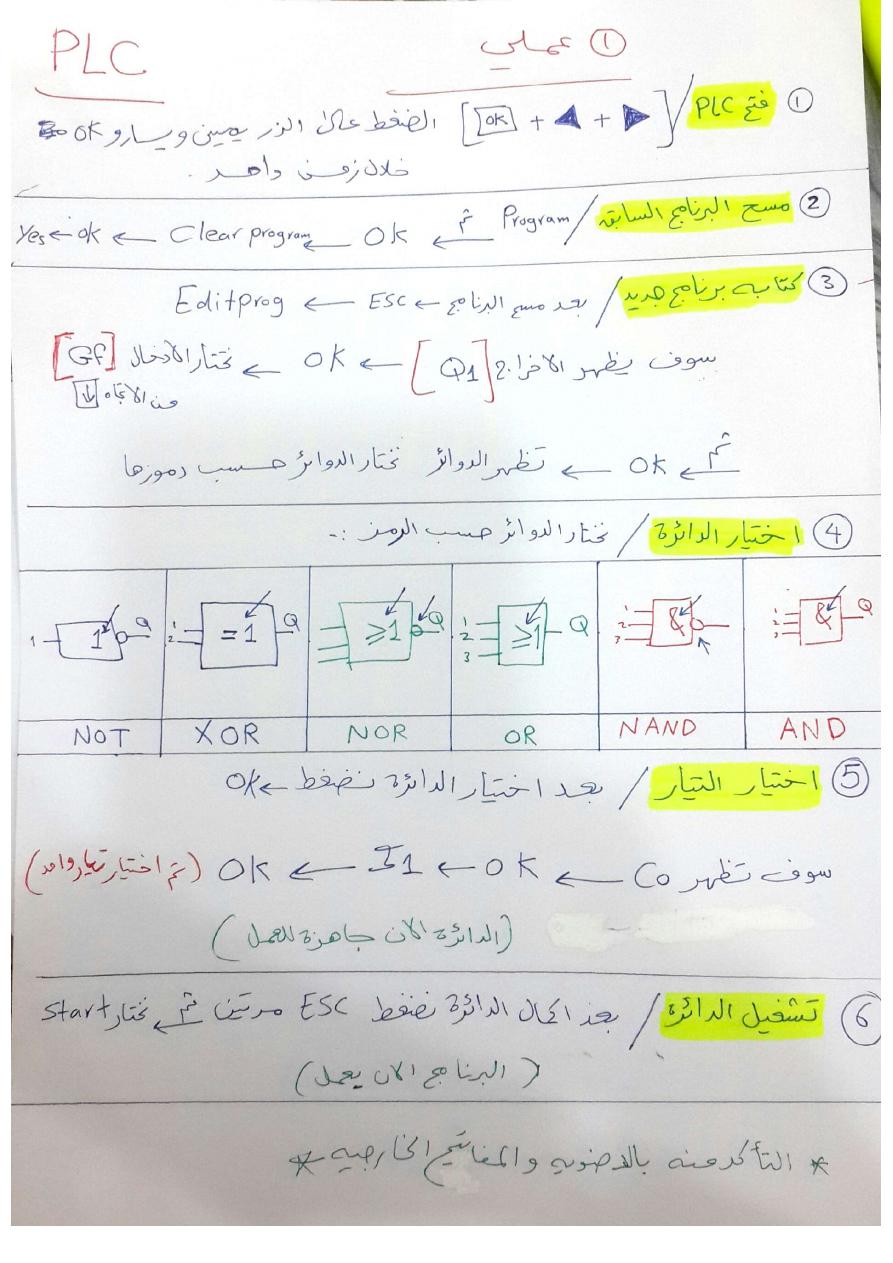 PLC
① عملي
① فتح PLC / [OK + ◀ + ▶] الضغط على الزر يمين ويسار و OK
خلال زمن واحد .
② مسح البرنامج السابق / Program ثم ← OK ← Clear program ← ok ← Yes
③ كتابه برنامج جديد / بعد مسح البرنامج ← ESC ← Editprog
سوف يظهر الاخراج [Q1] ← OK ← نختار الأدخال [GF]
من الاتجاه [↓]
ثم ← OK ← تظهر الدوائر نختار الدوائر حسب رموزها
④ اختيار الدائرة / نختار الدوائر حسب الرمز :-
1 2 3 & Q
1 2 3 &
1 2 3 ≥1 Q
≥1 Q
1 2 =1 Q
1 1 Q
AND
NAND
OR
NOR
XOR
NOT
⑤ اختيار التيار / بعد اختيار الدائرة نضغط ← OK
سوف تظهر Co ← OK ← I1 ← OK (تم اختيار تيار واحد)
(الدائرة الان جاهزة للعمل)
⑥ تشغيل الدائرة / بعد اكمال الدائرة نضغط ESC مرتين ثم ← نختار Start
(البرنامج الان يعمل)
* التأكد منه بالاضويه والمفاتيح الخارجيه *